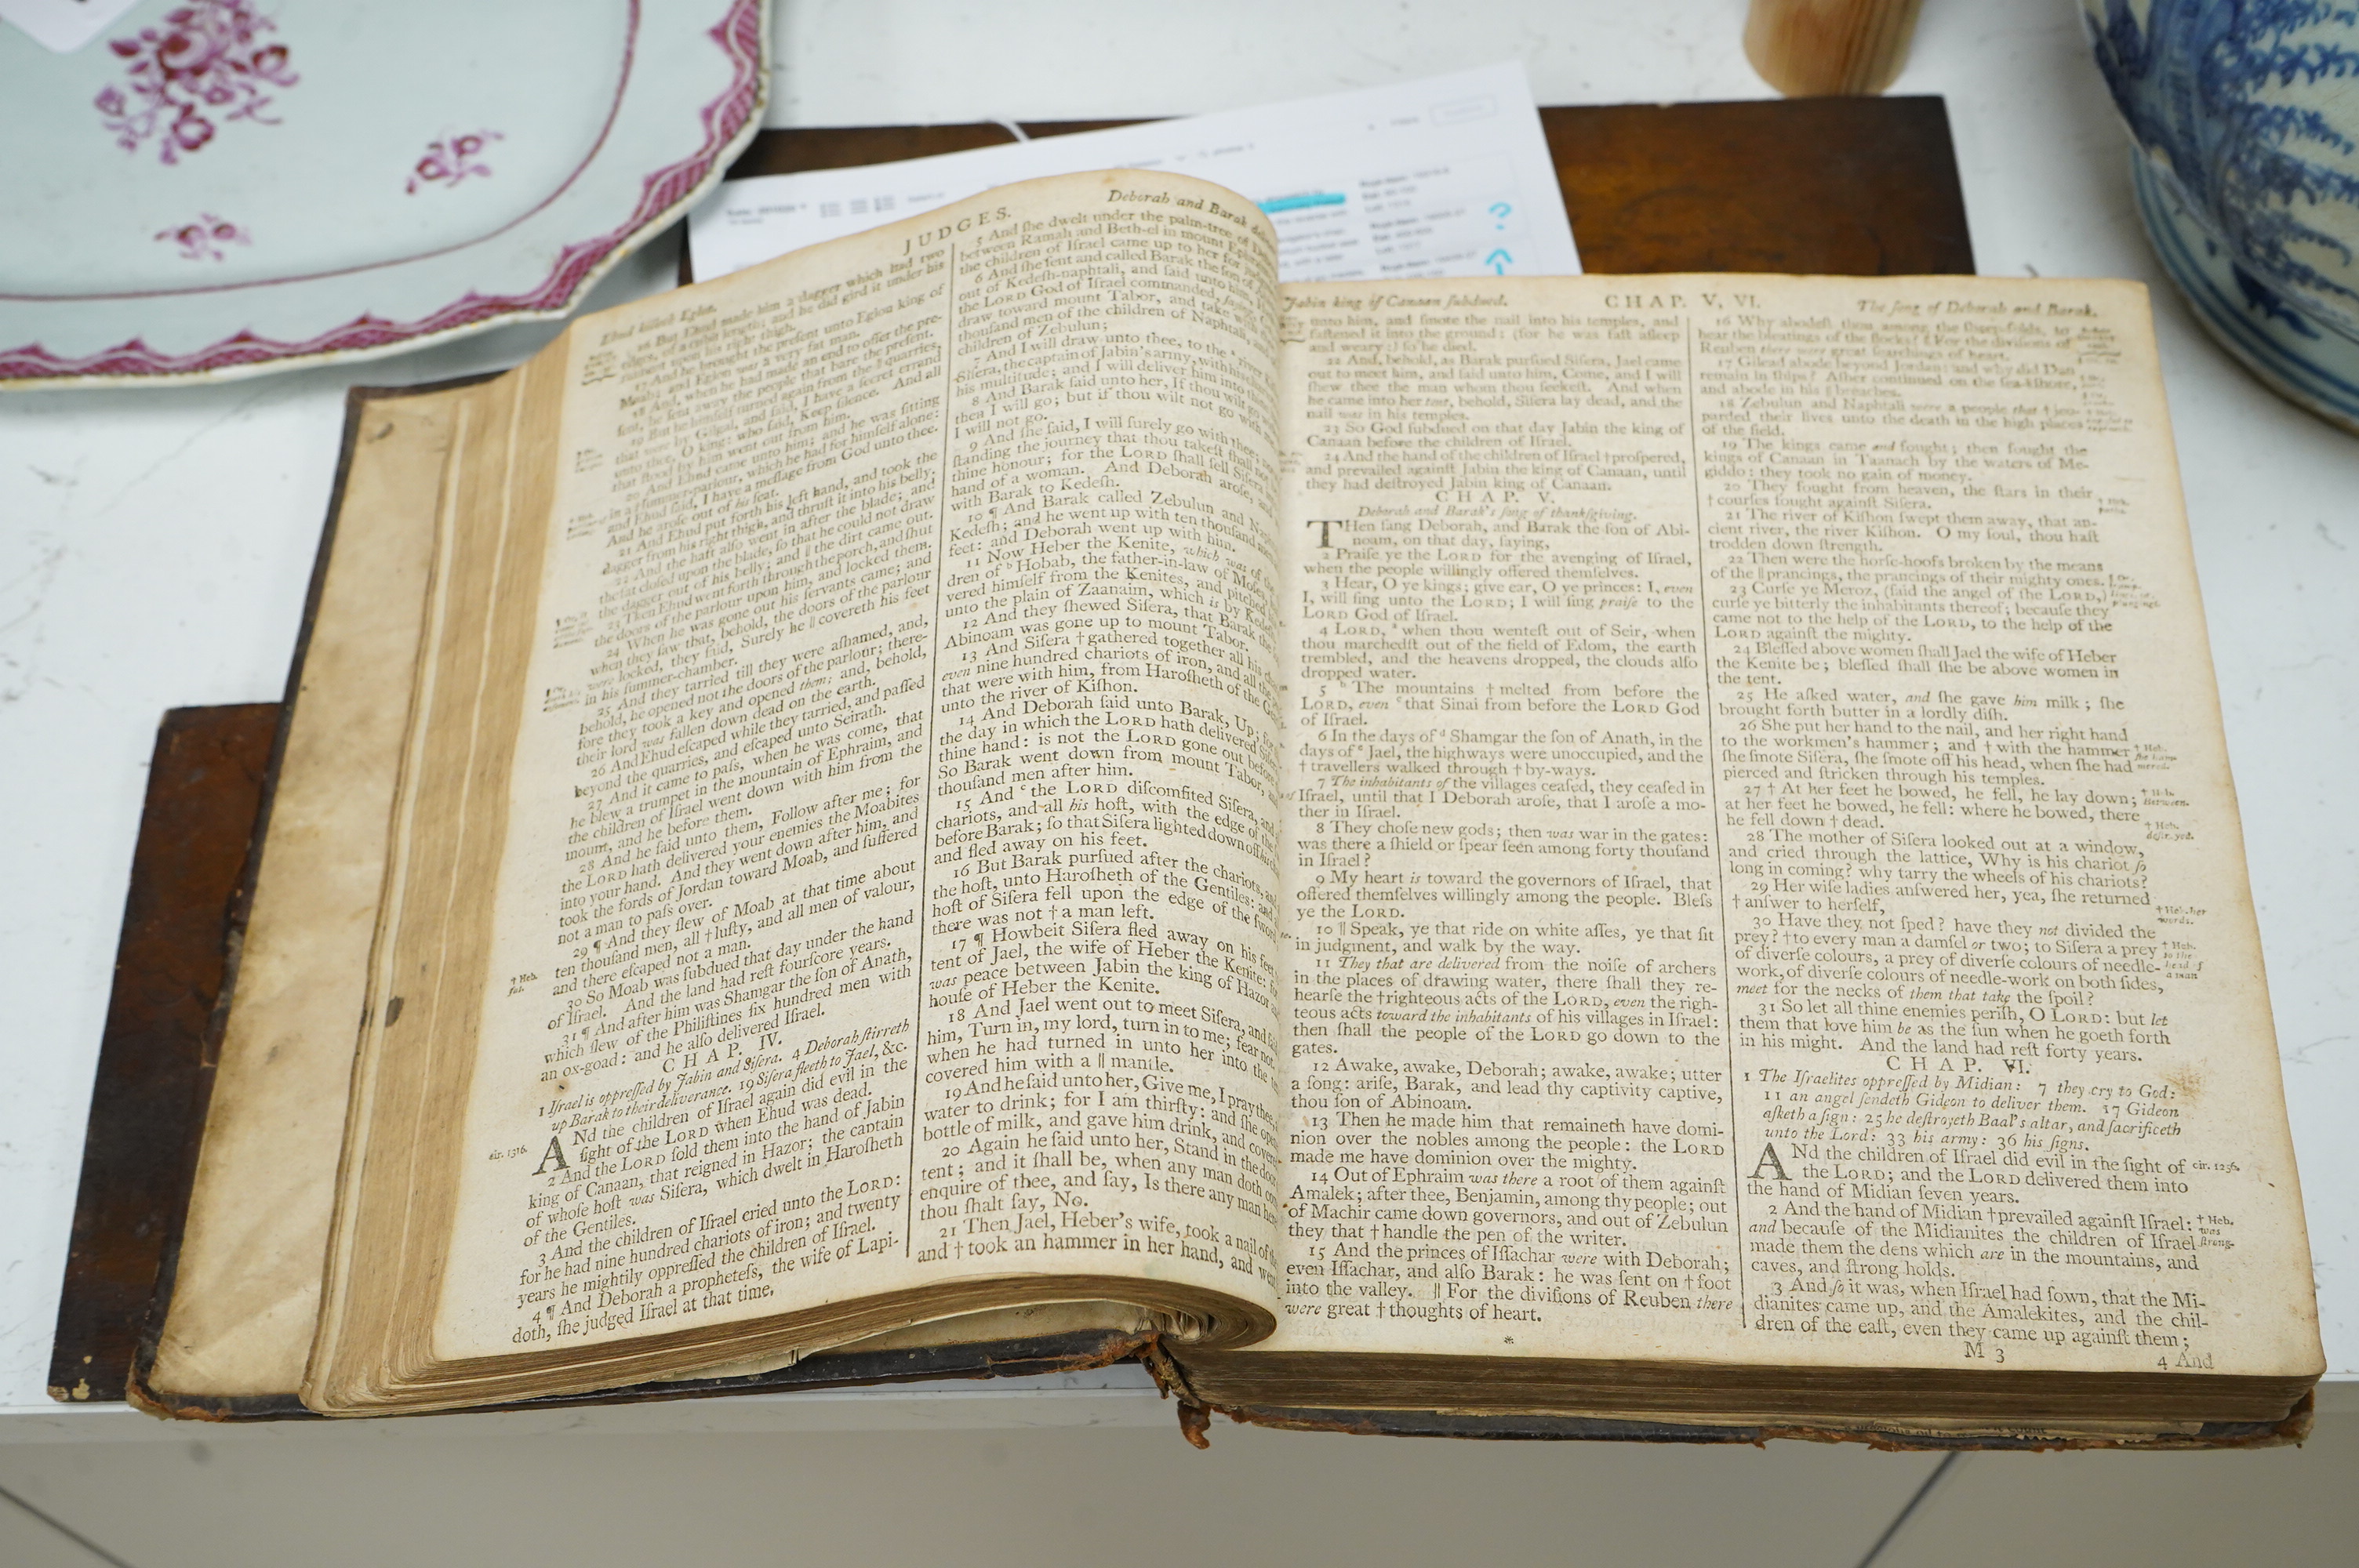 JUDGES.
Ehud killeth Eglon.
16 But Ehud made him a dagger which had two
edges, of a cubit length; and he did gird it under his
raiment upon his right thigh.
17 And he brought the preſent unto Eglon king of
Moab: and Eglon was a very fat man.
18 And, when he had made an end to offer the pre-
ſent, he ſent away the people that bare the preſent.
19 But he himſelf turned again from the || quarries,
that were by Gilgal, and ſaid, I have a ſecret errand
unto thee, O king: who ſaid, Keep ſilence. And all
that ſtood by him went out from him.
20 And Ehud came unto him; and he was ſitting
in a † ſummer-parlour, which he had for himſelf alone:
and Ehud ſaid, I have a meſſage from God unto thee.
And he aroſe out of his ſeat.
21 And Ehud put forth his left hand, and took the
dagger from his right thigh, and thruſt it into his belly;
22 And the haft alſo went in after the blade; and
the fat cloſed upon the blade, ſo that he could not draw
the dagger out of his belly; and || the dirt came out.
23 Then Ehud went forth through the porch, and ſhut
the doors of the parlour upon him, and locked them.
24 When he was gone out his ſervants came; and
when they ſaw that, behold, the doors of the parlour
were locked, they ſaid, Surely he || covereth his feet
in his ſummer-chamber.
25 And they tarried till they were aſhamed, and,
behold, he opened not the doors of the parlour; there-
fore they took a key and opened them; and, behold,
their lord was fallen down dead on the earth.
26 And Ehud eſcaped while they tarried, and paſſed
beyond the quarries, and eſcaped unto Seirath.
27 And it came to paſs, when he was come, that
he blew a trumpet in the mountain of Ephraim, and
the children of Iſrael went down with him from the
mount, and he before them.
28 And he ſaid unto them, Follow after me; for
the LORD hath delivered your enemies the Moabites
into your hand. And they went down after him, and
took the fords of Jordan toward Moab, and ſuffered
not a man to paſs over.
29 ¶ And they ſlew of Moab at that time about
ten thouſand men, all † luſty, and all men of valour,
and there eſcaped not a man.
30 So Moab was ſubdued that day under the hand
of Iſrael. And the land had reſt fourſcore years.
31 ¶ And after him was Shamgar the ſon of Anath,
which ſlew of the Philiſtines ſix hundred men with
an ox-goad: and he alſo delivered Iſrael.
CHAP. IV.
1 Iſrael is oppreſſed by Jabin and Siſera. 4 Deborah ſtirreth
up Barak to their deliverance. 19 Siſera fleeth to Jael, &c.
cir. 1316.
ANd the children of Iſrael again did evil in the
ſight of the LORD when Ehud was dead.
2 And the LORD ſold them into the hand of Jabin
king of Canaan, that reigned in Hazor; the captain
of whoſe hoſt was Siſera, which dwelt in Haroſheth
of the Gentiles.
3 And the children of Iſrael cried unto the LORD:
for he had nine hundred chariots of iron; and twenty
years he mightily oppreſſed the children of Iſrael.
4 ¶ And Deborah a propheteſs, the wife of Lapi-
doth, ſhe judged Iſrael at that time.
Deborah and Barak
5 And ſhe dwelt under the palm-tree of
between Ramah and Beth-el in mount
the children of Iſrael came up to her for
6 And ſhe ſent and called Barak the ſon of
out of Kedeſh-naphtali, and ſaid unto him,
the LORD God of Iſrael commanded,
draw toward mount Tabor, and take with
thouſand men of the children of Naphtali,
children of Zebulun;
7 And I will draw unto thee, to the river
Siſera, the captain of Jabin's army, with his
his multitude; and I will deliver him into
8 And Barak ſaid unto her, If thou wilt go
then I will go; but if thou wilt not go with
I will not go.
9 And ſhe ſaid, I will ſurely go with thee:
ſtanding the journey that thou takeſt ſhall not
thine honour; for the LORD ſhall ſell Siſera
hand of a woman. And Deborah aroſe,
with Barak to Kedeſh.
10 ¶ And Barak called Zebulun and
Kedeſh; and he went up with ten thouſand
feet: and Deborah went up with him.
11 Now Heber the Kenite, which was of the
dren of Hobab, the father-in-law of Moſes,
vered himſelf from the Kenites, and pitched
unto the plain of Zaanaim, which is by
12 And they ſhewed Siſera, that Barak the
Abinoam was gone up to mount Tabor.
13 And Siſera † gathered together all his
even nine hundred chariots of iron, and all the
that were with him, from Haroſheth of the
unto the river of Kiſhon.
14 And Deborah ſaid unto Barak, Up; for
the day in which the LORD hath delivered
thine hand: is not the LORD gone out before
So Barak went down from mount Tabor,
thouſand men after him.
15 And the LORD diſcomfited Siſera, and
chariots, and all his hoſt, with the edge of the
before Barak; ſo that Siſera lighted down off
and fled away on his feet.
16 But Barak purſued after the chariots, and
the hoſt, unto Haroſheth of the Gentiles: and
hoſt of Siſera fell upon the edge of the ſword
there was not † a man left.
17 ¶ Howbeit Siſera fled away on his feet
tent of Jael, the wife of Heber the Kenite: for
was peace between Jabin the king of Hazor
houſe of Heber the Kenite.
18 And Jael went out to meet Siſera, and
him, Turn in, my lord, turn in to me; fear not.
when he had turned in unto her into the
covered him with a || mantle.
19 And he ſaid unto her, Give me, I pray thee,
water to drink; for I am thirſty: and ſhe
bottle of milk, and gave him drink, and
20 Again he ſaid unto her, Stand in the door
tent; and it ſhall be, when any man doth
enquire of thee, and ſay, Is there any man here
thou ſhalt ſay, No.
21 Then Jael, Heber's wife, took a nail of the
and † took an hammer in her hand, and went
Jabin king of Canaan ſubdued.
CHAP. V, VI.
The ſong of Deborah and Barak.
unto him, and ſmote the nail into his temples, and
faſtened it into the ground: (for he was faſt aſleep
and weary:) ſo he died.
22 And, behold, as Barak purſued Siſera, Jael came
out to meet him, and ſaid unto him, Come, and I will
ſhew thee the man whom thou ſeekeſt. And when
he came into her tent, behold, Siſera lay dead, and the
nail was in his temples.
23 So God ſubdued on that day Jabin the king of
Canaan before the children of Iſrael.
24 And the hand of the children of Iſrael † proſpered,
and prevailed againſt Jabin the king of Canaan, until
they had deſtroyed Jabin king of Canaan.
CHAP. V.
Deborah and Barak's ſong of thankſgiving.
THen ſang Deborah, and Barak the ſon of Abi-
noam, on that day, ſaying,
2 Praiſe ye the LORD for the avenging of Iſrael,
when the people willingly offered themſelves.
3 Hear, O ye kings; give ear, O ye princes: I, even
I, will ſing unto the LORD; I will ſing praiſe to the
LORD God of Iſrael.
4 LORD, when thou wenteſt out of Seir, when
thou marchedſt out of the field of Edom, the earth
trembled, and the heavens dropped, the clouds alſo
dropped water.
5 The mountains † melted from before the
LORD, even that Sinai from before the LORD God
of Iſrael.
6 In the days of Shamgar the ſon of Anath, in the
days of Jael, the highways were unoccupied, and the
† travellers walked through † by-ways.
7 The inhabitants of the villages ceaſed, they ceaſed in
Iſrael, until that I Deborah aroſe, that I aroſe a mo-
ther in Iſrael.
8 They choſe new gods; then was war in the gates:
was there a ſhield or ſpear ſeen among forty thouſand
in Iſrael?
9 My heart is toward the governors of Iſrael, that
offered themſelves willingly among the people. Bleſs
ye the LORD.
10 || Speak, ye that ride on white aſſes, ye that ſit
in judgment, and walk by the way.
11 They that are delivered from the noiſe of archers
in the places of drawing water, there ſhall they re-
hearſe the † righteous acts of the LORD, even the righ-
teous acts toward the inhabitants of his villages in Iſrael:
then ſhall the people of the LORD go down to the
gates.
12 Awake, awake, Deborah; awake, awake; utter
a ſong: ariſe, Barak, and lead thy captivity captive,
thou ſon of Abinoam.
13 Then he made him that remaineth have domi-
nion over the nobles among the people: the LORD
made me have dominion over the mighty.
14 Out of Ephraim was there a root of them againſt
Amalek; after thee, Benjamin, among thy people; out
of Machir came down governors, and out of Zebulun
they that † handle the pen of the writer.
15 And the princes of Iſſachar were with Deborah;
even Iſſachar, and alſo Barak: he was ſent on † foot
into the valley. || For the diviſions of Reuben there
were great † thoughts of heart.
*
16 Why abodeſt thou among the ſheep-folds, to
hear the bleatings of the flocks? || For the diviſions of
Reuben there were great ſearchings of heart.
17 Gilead abode beyond Jordan: and why did Dan
remain in ſhips? Aſher continued on the ſea-ſhore,
and abode in his || breaches.
18 Zebulun and Naphtali were a people that † jeo-
parded their lives unto the death in the high places
of the field.
19 The kings came and fought; then fought the
kings of Canaan in Taanach by the waters of Me-
giddo: they took no gain of money.
20 They fought from heaven, the ſtars in their
† courſes fought againſt Siſera.
21 The river of Kiſhon ſwept them away, that an-
cient river, the river Kiſhon. O my ſoul, thou haſt
trodden down ſtrength.
22 Then were the horſe-hoofs broken by the means
of the || prancings, the prancings of their mighty ones.
23 Curſe ye Meroz, (ſaid the angel of the LORD,)
curſe ye bitterly the inhabitants thereof; becauſe they
came not to the help of the LORD, to the help of the
LORD againſt the mighty.
24 Bleſſed above women ſhall Jael the wife of Heber
the Kenite be; bleſſed ſhall ſhe be above women in
the tent.
25 He aſked water, and ſhe gave him milk; ſhe
brought forth butter in a lordly diſh.
26 She put her hand to the nail, and her right hand
to the workmen's hammer; and † with the hammer
ſhe ſmote Siſera, ſhe ſmote off his head, when ſhe had
pierced and ſtricken through his temples.
27 † At her feet he bowed, he fell, he lay down;
at her feet he bowed, he fell: where he bowed, there
he fell down † dead.
28 The mother of Siſera looked out at a window,
and cried through the lattice, Why is his chariot ſo
long in coming? why tarry the wheels of his chariots?
29 Her wiſe ladies anſwered her, yea, ſhe returned
† anſwer to herſelf,
30 Have they not ſped? have they not divided the
prey? † to every man a damſel or two; to Siſera a prey
of diverſe colours, a prey of diverſe colours of needle-
work, of diverſe colours of needle-work on both ſides,
meet for the necks of them that take the ſpoil?
31 So let all thine enemies periſh, O LORD: but let
them that love him be as the ſun when he goeth forth
in his might. And the land had reſt forty years.
CHAP. VI.
1 The Iſraelites oppreſſed by Midian: 7 they cry to God:
11 an angel ſendeth Gideon to deliver them. 17 Gideon
aſketh a ſign: 25 he deſtroyeth Baal's altar, and ſacrificeth
unto the Lord: 33 his army: 36 his ſigns.
ANd the children of Iſrael did evil in the ſight of
cir. 1256.
the LORD; and the LORD delivered them into
the hand of Midian ſeven years.
2 And the hand of Midian † prevailed againſt Iſrael:
and becauſe of the Midianites the children of Iſrael
made them the dens which are in the mountains, and
caves, and ſtrong holds.
† Heb.
was
ſtrong.
3 And ſo it was, when Iſrael had ſown, that the Mi-
dianites came up, and the Amalekites, and the chil-
dren of the eaſt, even they came up againſt them;
M 3
4 And